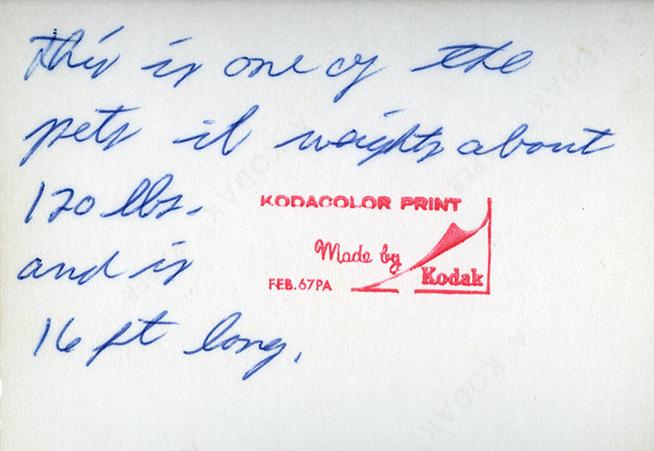 this is one of the
pets it weights about
120 lbs.
and is
16 ft long.
KODACOLOR PRINT
Made by
Kodak
FEB.67PA